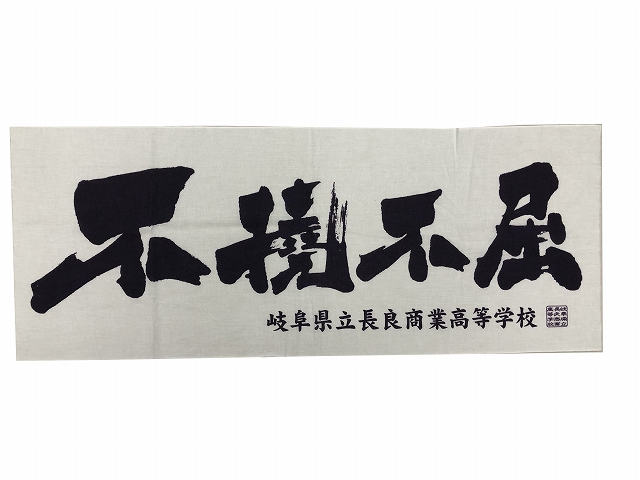 不撓不屈
岐阜県立長良商業高等学校